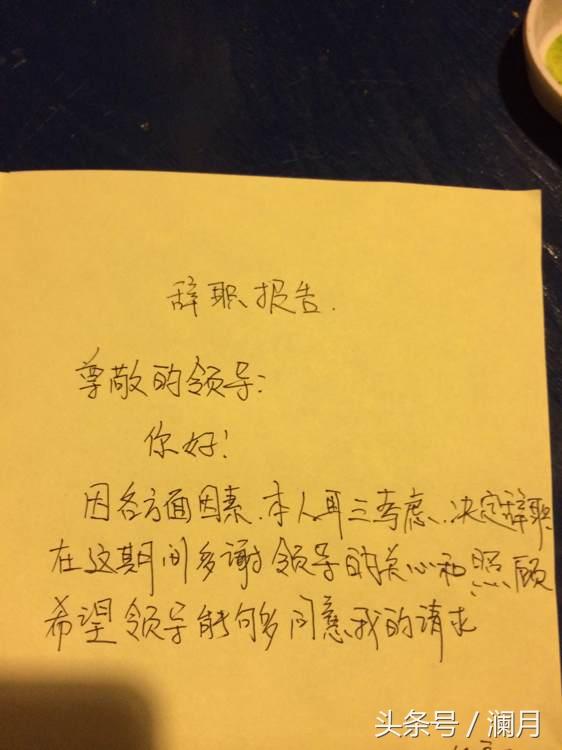 辞职报告.
尊敬的领导:
你好!
因各方面因素,本人再三考虑,决定辞职
在这期间多谢领导的关心和照顾
希望领导能够多同意我的请求
头条号 / 澜月